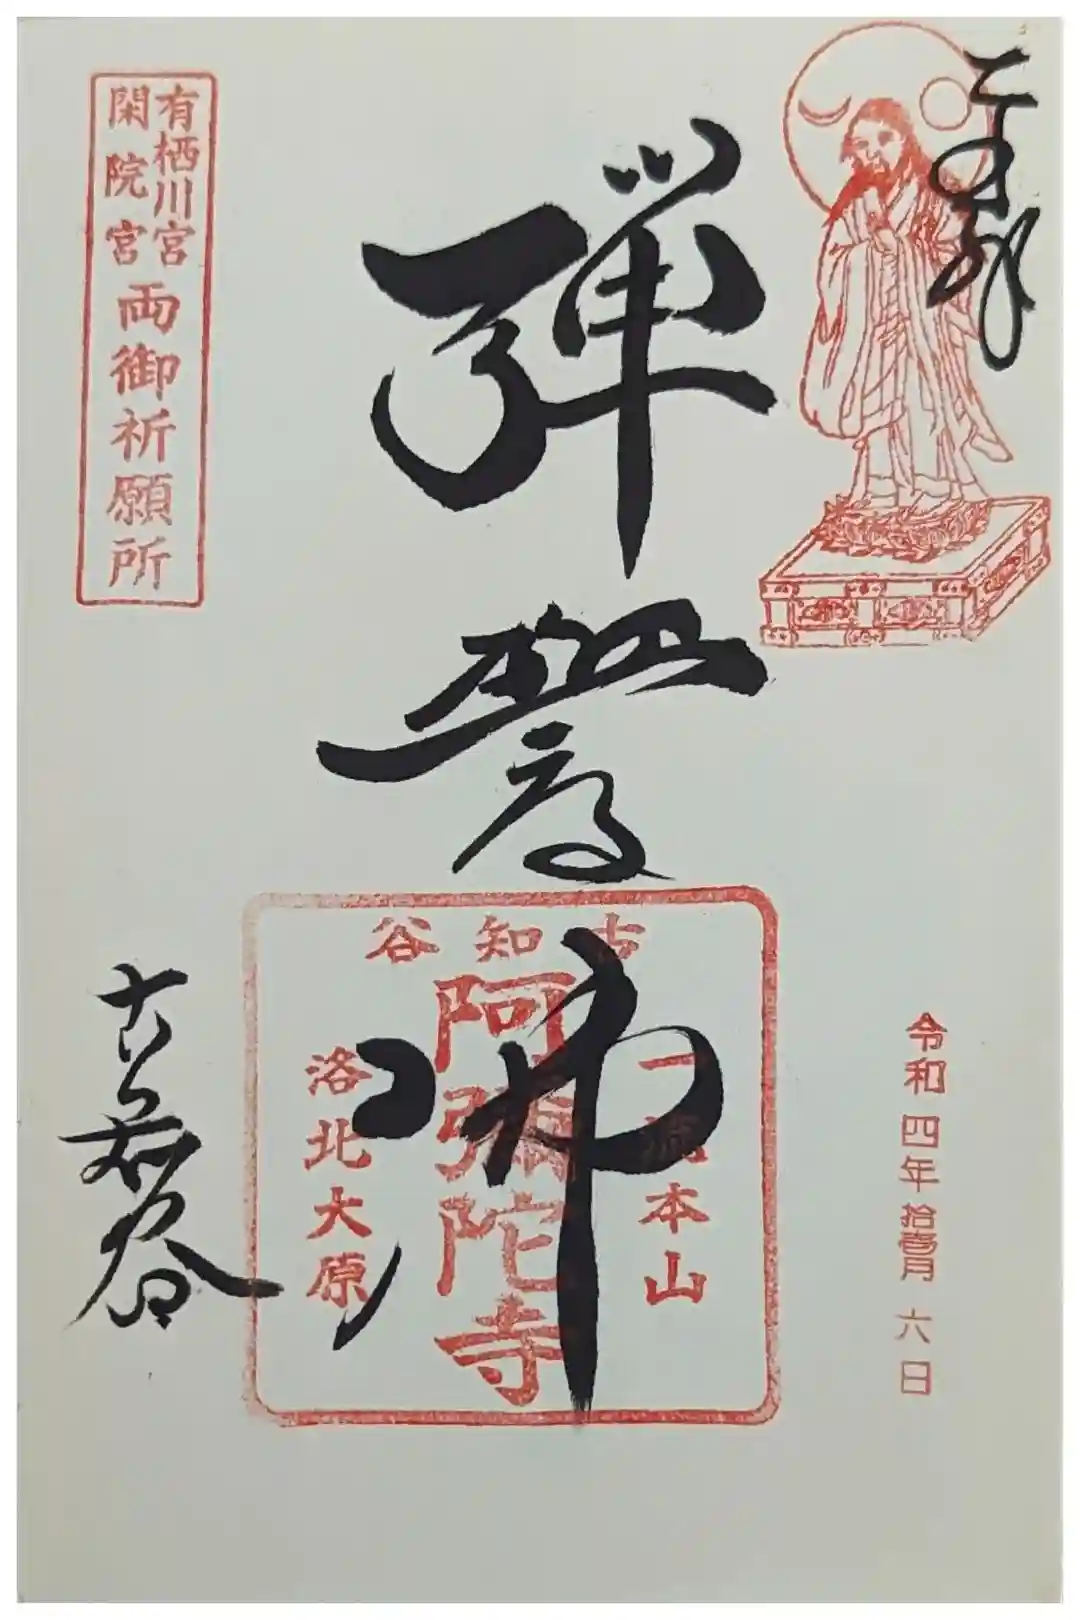 奉拝
弾誓佛
古知谷
一流本山
阿彌陀寺
洛北大原
有栖川宮
閑院宮
両御祈願所
古知谷
令和四年拾壱月六日